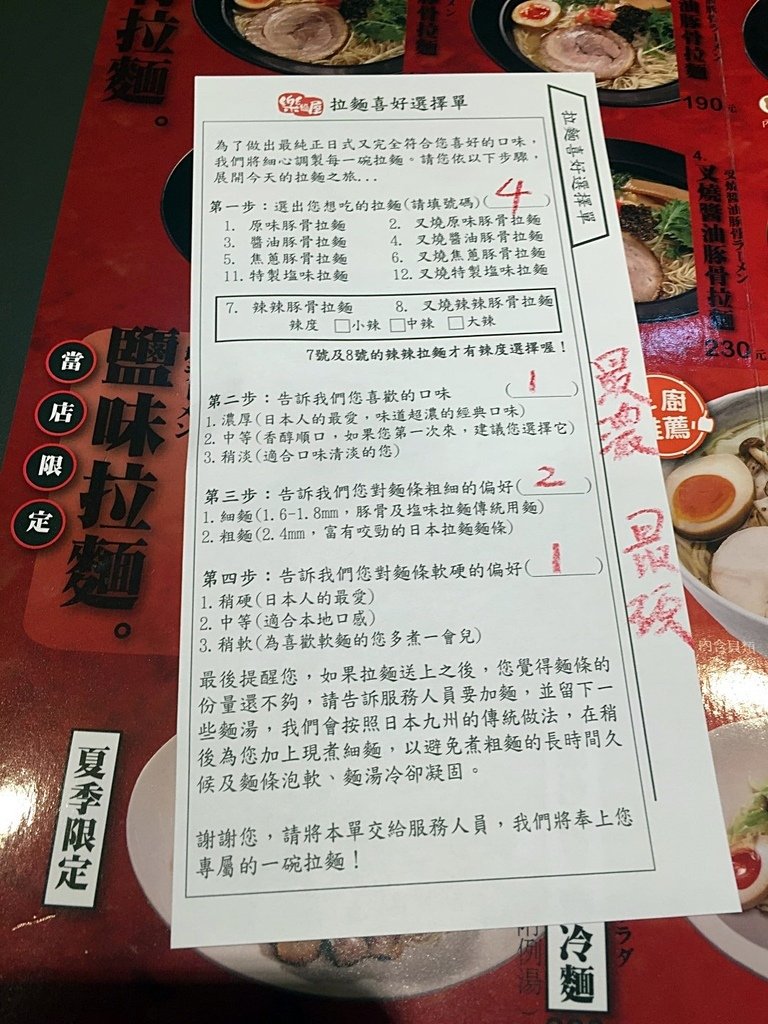 樂麵屋 拉麵喜好選擇單
拉麵喜好選擇單
為了做出最純正日式又完全符合您喜好的口味，
我們將細心調製每一碗拉麵。請您依以下步驟，
展開今天的拉麵之旅...
第一步：選出您想吃的拉麵(請填號碼)( 4 )
1. 原味豚骨拉麵 2. 叉燒原味豚骨拉麵
3. 醬油豚骨拉麵 4. 叉燒醬油豚骨拉麵
5. 焦蔥豚骨拉麵 6. 叉燒焦蔥豚骨拉麵
11. 特製塩味拉麵 12. 叉燒特製塩味拉麵
7. 辣辣豚骨拉麵 8. 叉燒辣辣豚骨拉麵
辣度 □小辣 □中辣 □大辣
7號及8號的辣辣拉麵才有辣度選擇喔！
第二步：告訴我們您喜歡的口味 ( 1 )
1. 濃厚(日本人的最愛，味道超濃的經典口味)
2. 中等(香醇順口，如果您第一次來，建議您選擇它)
3. 稍淡(適合口味清淡的您)
最濃
第三步：告訴我們您對麵條粗細的偏好( 2 )
1. 細麵(1.6-1.8mm，豚骨及塩味拉麵傳統用麵)
2. 粗麵(2.4mm，富有咬勁的日本拉麵麵條)
第四步：告訴我們您對麵條軟硬的偏好( 1 )
1. 稍硬(日本人的最愛)
2. 中等(適合本地口感)
3. 稍軟(為喜歡軟麵的您多煮一會兒)
最硬
最後提醒您，如果拉麵送上之後，您覺得麵條的
份量還不夠，請告訴服務人員要加麵，並留下一
些麵湯，我們會按照日本九州的傳統做法，在稍
後為您加上現煮細麵，以避免煮粗麵的長時間久
候及麵條泡軟、麵湯冷卻凝固。
謝謝您，請將本單交給服務人員，我們將奉上您
專屬的一碗拉麵！
骨拉麵。
當店限定
鹽味拉麵。
夏季限定
油豚骨拉麵
190元
4.
叉燒醬油豚骨拉麵
叉燒醬油豚骨ラーメン
230元
廚
推薦
內含貝類
冷麵
ラダ
附例湯